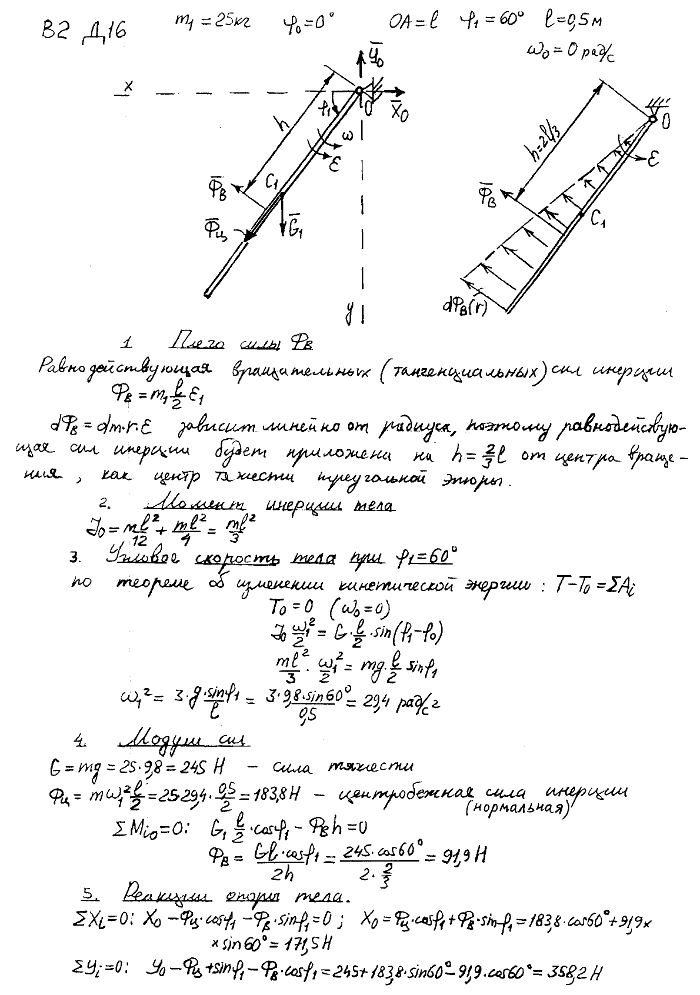 В2 Д16 m₁ = 25кг φ₀ = 0° OA = l φ₁ = 60° l = 0,5 м
ω₀ = 0 рад/с
x h φ₁ Ȳ₀ O X̄₀ ω ε C₁ Φ̄в Φ̄ц Ḡ₁ y
h=2l/3 O ε Φ̄в C₁ dΦ̄в(r̄)
1 Плечо силы Φв
Равнодействующая вращательных (тангенциальных) сил инерции
Φв = m₁ l/2 ε₁
dΦв = dm·r·ε зависит линейно от радиуса, поэтому равнодействую-
щая сил инерции будет приложена на h = 2/3 l от центра враще-
ния, как центр тяжести треугольной эпюры.
2. Момент инерции тела
J₀ = ml²/12 + ml²/4 = ml²/3
3. Угловая скорость тела при φ₁ = 60°
по теореме об изменении кинетической энергии: T - T₀ = ΣAᵢ
T₀ = 0 (ω₀ = 0)
J₀ ω₁²/2 = G·l/2·sin(φ₁-φ₀)
ml²/3 · ω₁²/2 = mg·l/2 sinφ₁
ω₁² = 3·g·sinφ₁/l = 3·9,8·sin60°/0,5 = 29,4 рад/с²
4. Модули сил
G = mg = 25·9,8 = 245 Н – сила тяжести
Φц = mω₁² l/2 = 25·29,4·0,5/2 = 183,8 Н – центробежная сила инерции
(нормальная)
ΣMᵢ₀ = 0: G₁ l/2·cosφ₁ - Φвh = 0
Φв = Gl·cosφ₁/2h = 245·cos60°/2·2/3 = 91,9 Н
5. Реакции опоры тела.
ΣXᵢ = 0: X₀ - Φц·cosφ₁ - Φв·sinφ₁ = 0; X₀ = Φц·cosφ₁ + Φв·sinφ₁ = 183,8·cos60° + 91,9×
×sin60° = 171,5 Н
ΣYᵢ = 0: Y₀ - Φц + sinφ₁ - Φв·cosφ₁ = 245 + 183,8·sin60° - 91,9·cos60° = 358,2 Н